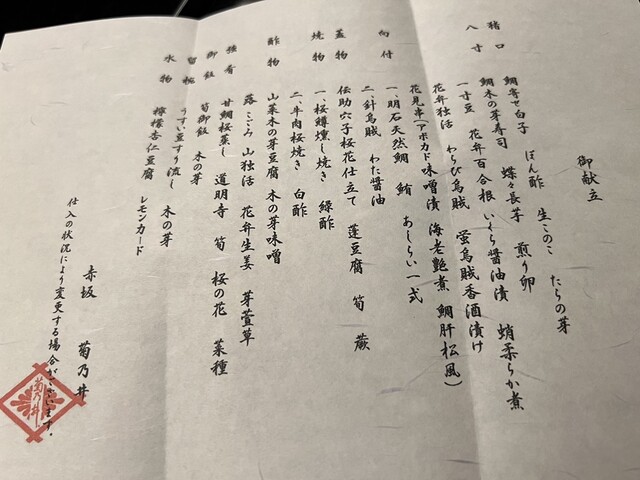 御献立
猪口　鯛寄せ白子　ぽん酢　生このこ　たらの芽
八寸　鯛木の芽寿司　蝶々長芋　煎り卵
一寸豆　花弁百合根　いくら醤油漬　蛸柔らか煮
花弁独活　わらび烏賊　蛍烏賊香酒漬け
花見串(アボカド味噌漬　海老艶煮　鯛肝松風)
向付　一、明石天然鯛　鮪　あしらい一式
二、針烏賊　わた醤油
蓋物　伝助穴子桜花仕立て　蓬豆腐　筍　蕨
焼物　一、桜鱒燻し焼き　緑酢
二、牛肉桜焼き　白酢
酢物　山菜木の芽豆腐　木の芽味噌
蕗　こごみ　山独活　花弁生姜　芽萱草
強肴　甘鯛桜蒸し　道明寺　筍　桜の花　菜種
御飯　筍御飯　木の芽
留椀　うすい豆すり流し　木の芽
水物　檸檬杏仁豆腐　レモンカード
赤坂　菊乃井
仕入の状況により変更する場合がございます。
菊乃井